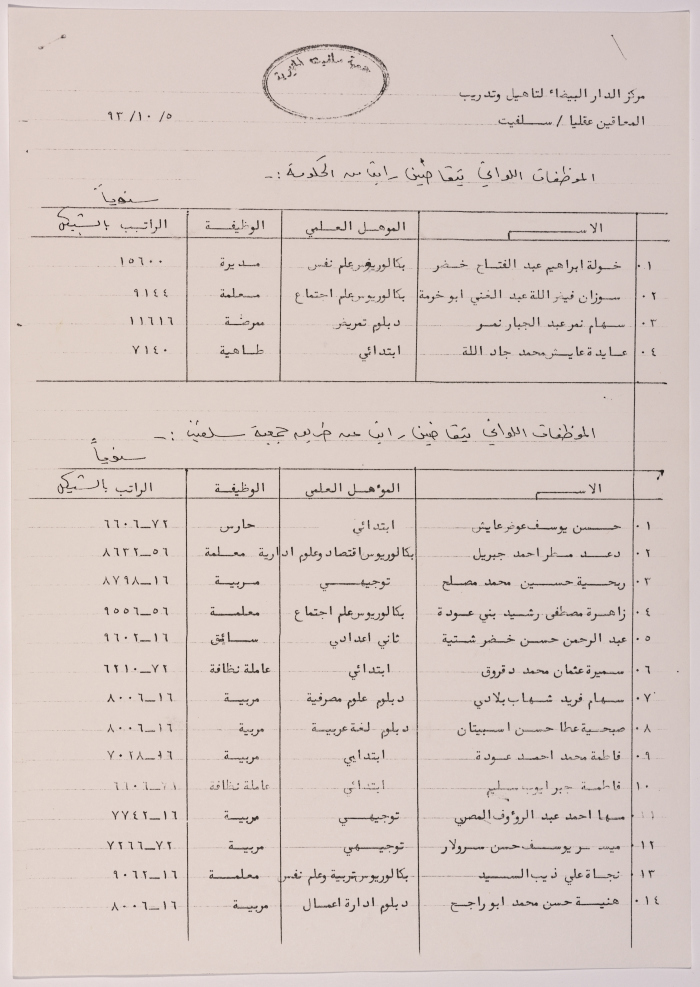 جمعية سلفيت الخيرية
مركز الدار البيضاء لتاهيل وتدريب
المعاقين عقليا / سلفيت ٥ /١٠ /٩٣
الموظفات اللواتي يتقاضين راتب من الحكومة :-
سنوياً
الاسم الموهل العلمي الوظيفة الراتب بالشيكل
٠١ خولة ابراهيم عبد الفتاح خضر بكالوريوس علم نفس مديرة ١٥٦٠٠
٠٢ سوزان فيض اللة عبد الغني ابو خرمة بكالوريوس علم اجتماع معلمة ٩١٤٤
٠٣ سهام نمر عبد الجبار نمر دبلوم تمريض ممرضة ١١٦١٦
٠٤ عايدة عايش محمد جاد اللة ابتدائي طاهية ٧١٤٠
الموظفات اللواتي يتقاضين راتب عن طريق جمعية سلفيت :-
سنوياً
الاسم المؤهل العلمي الوظيفة الراتب بالشيكل
٠١ حسن يوسف عوض عايش ابتدائي حارس ٦٦٠٦-٧٢
٠٢ دعد مطر احمد جبريل بكالوريوس اقتصاد وعلوم ادارية معلمة ٨٦٣٢-٥٦
٠٣ ربحية حسين محمد مصلح توجيهي مربية ٨٧٩٨-١٦
٠٤ زاهرة مصطفى رشيد بني عودة بكالوريوس علم اجتماع معلمة ٩٥٥٦-٥٦
٠٥ عبد الرحمن حسن خضر شتية ثاني اعدادي سائق ٩٦٠٢-١٦
٠٦ سميرة عثمان محمد دقروق ابتدائي عاملة نظافة ٦٢١٠-٧٢
٠٧ سهام فريد شهاب بلادي دبلوم علوم مصرفية مربية ٨٠٠٦-١٦
٠٨ صبحية عطا حسن اسبيتان دبلوم لغة عربية مربية ٨٠٠٦-١٦
٠٩ فاطمة محمد احمد عودة ابتدايي مربية ٧٠٣٨-١٦
١٠ فاطمة جبر ايوب سليم ابتدائي عاملة نظافة
٠١١ مها احمد عبد الرؤوف المصري توجيهي مربية ٧٧٤٢-١٦
٠١٢ ميسر يوسف حسن سرولار توجيهي مربية ٧٢٦٦-٧٢
٠١٣ نجاة علي ذيب السيد بكالوريوس تربية وعلم نفس معلمة ٩٠٦٢-١٦
٠١٤ هنية حسن محمد ابو راجح دبلوم ادارة اعمال مربية ٨٠٠٦-١٦